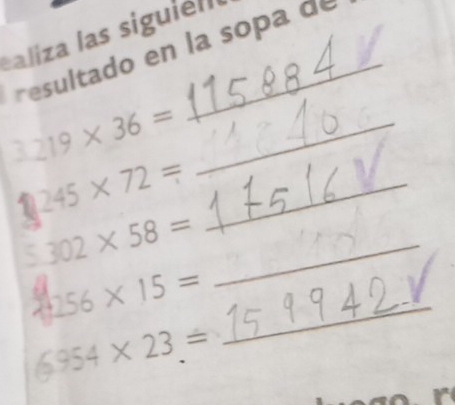 ealiza las
resultado en la sopa de
3 219 × 36 = 115884
245 × 72 =
302 × 58 = 17516
256 × 15 =
6954 × 23 = 159942